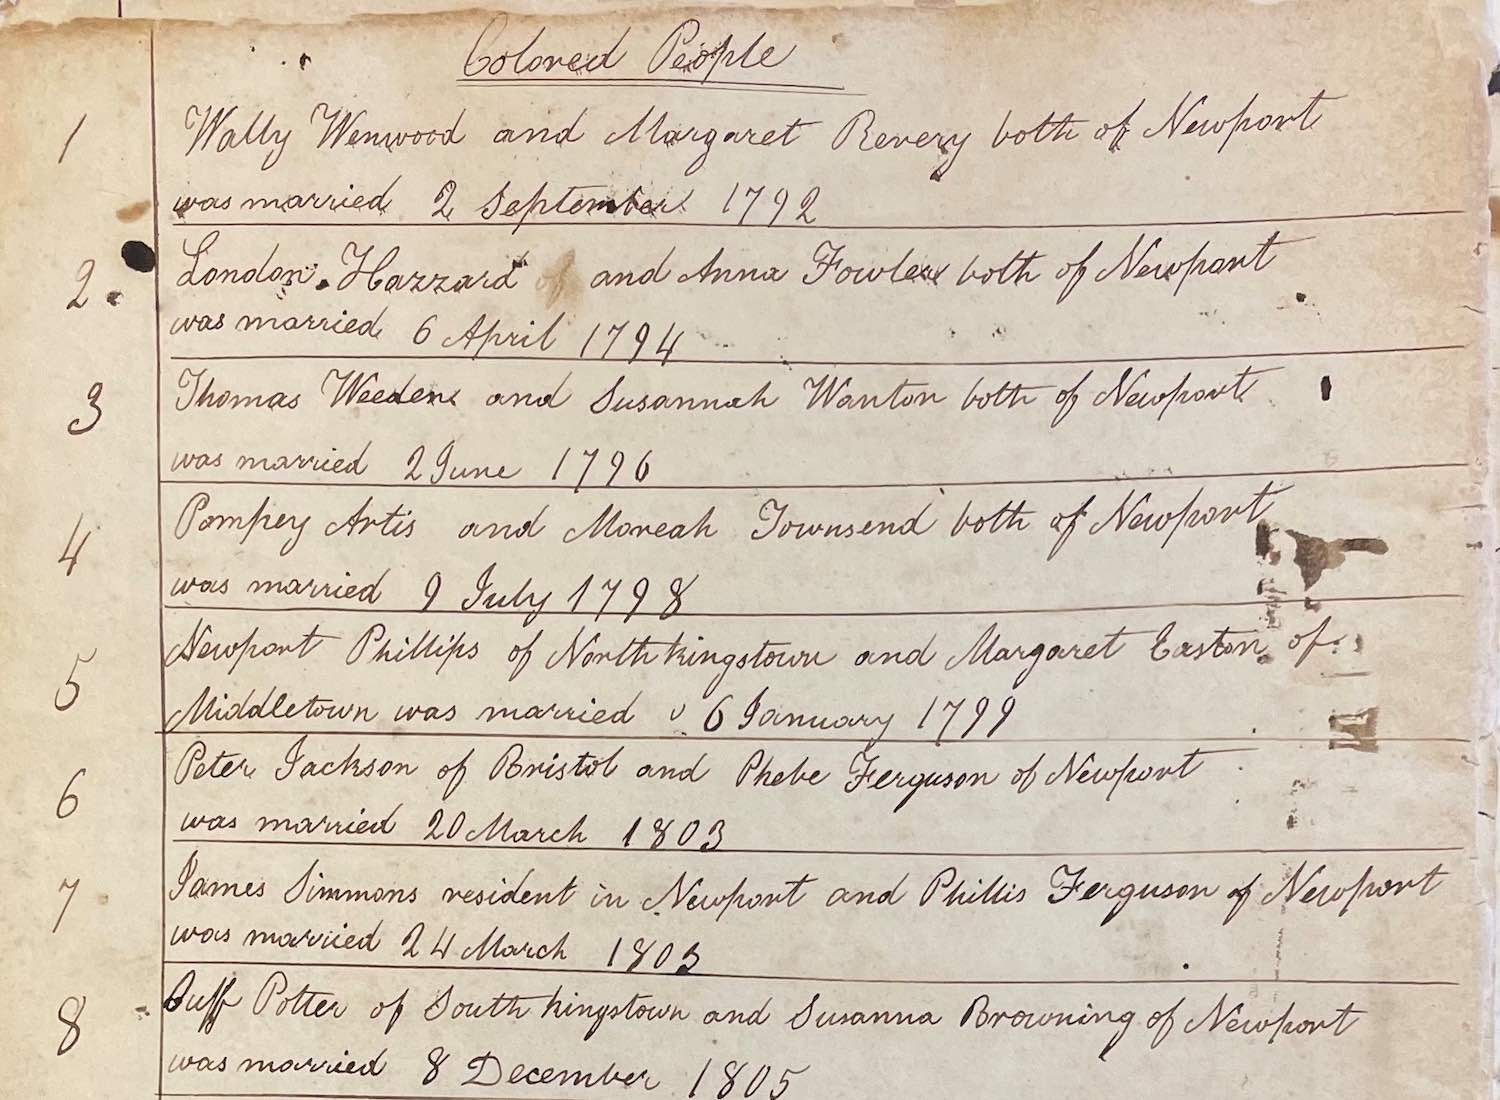 Colored People
1 Wally Wenwood and Margaret Revery both of Newport
was married 2 September 1792
2 London Hazzard and Anna Fowler both of Newport
was married 6 April 1794
3 Thomas Weeden and Susannah Wanton both of Newport
was married 2 June 1796
4 Pompey Artis and Moreah Townsend both of Newport
was married 9 July 1798
5 Newport Phillips of North Kingstown and Margaret Easton of
Middletown was married 6 January 1799
6 Peter Jackson of Bristol and Phebe Ferguson of Newport
was married 20 March 1803
7 James Simmons resident in Newport and Phillis Ferguson of Newport
was married 24 March 1803
8 Cuff Potter of South Kingstown and Susanna Browning of Newport
was married 8 December 1805